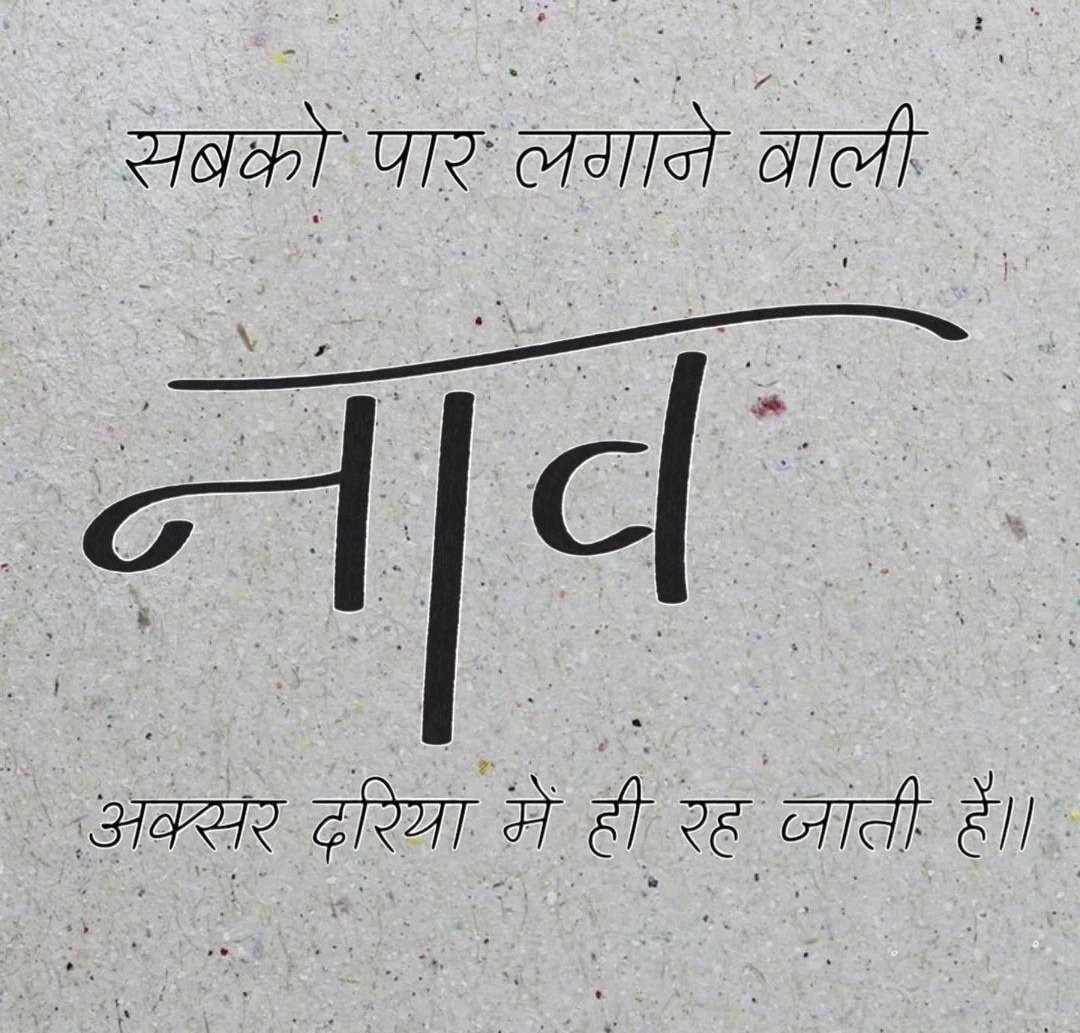 सबको पार लगाने वाली
नाव
अक्सर दरिया में ही रह जाती है॥